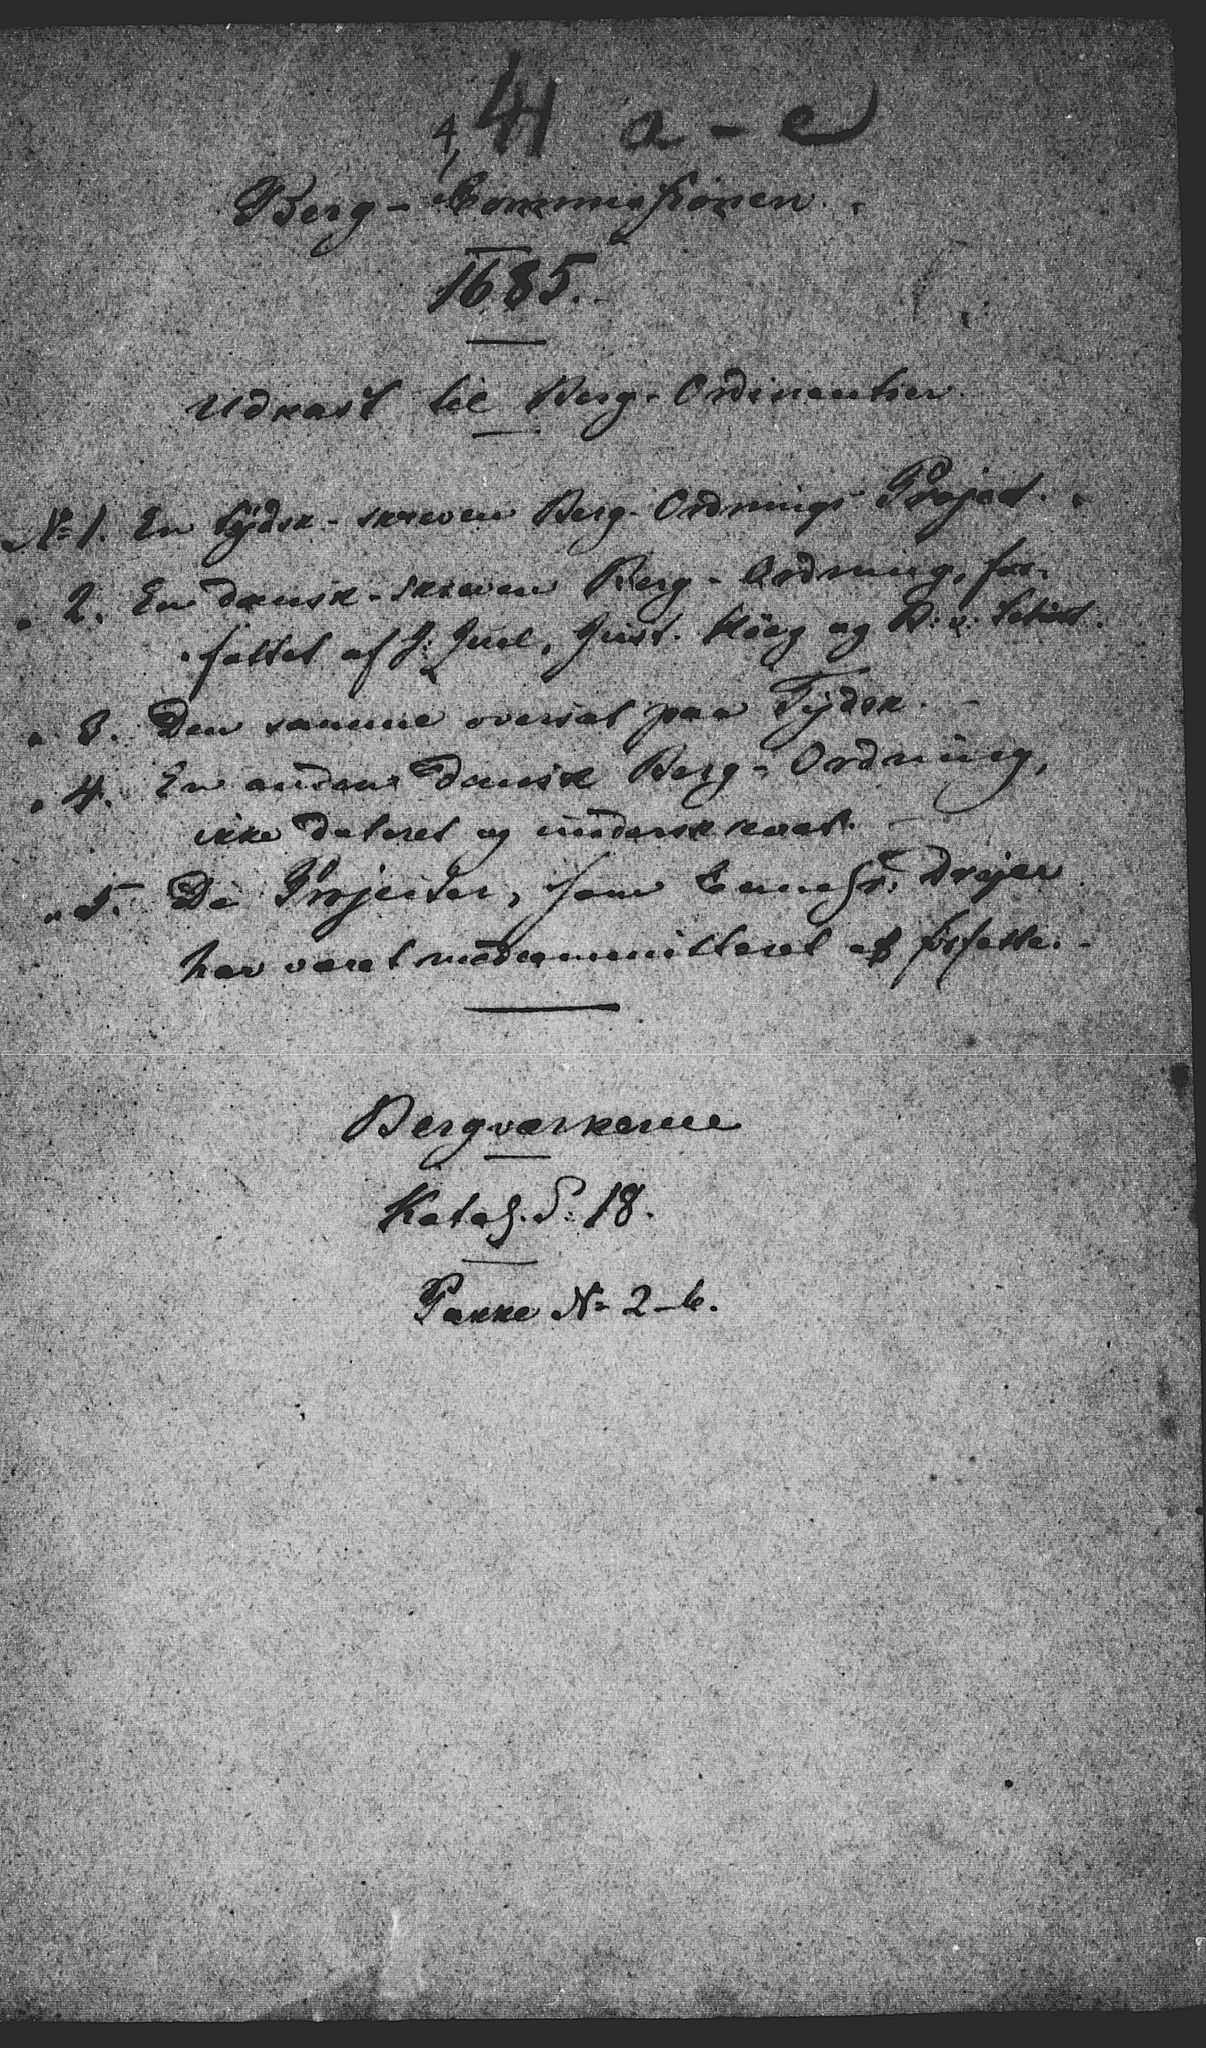 4, 41 a - e
Berg-Commissionen.
1685.
Udkast til Berg-Ordinantier
No 1. En tydsk-skreven Berg-Ordnings Project.
" 2. En dansk-skreven Berg-Ordning, for-
fattet af J: Juel, Just. Höeg og D: v: Schult.
" 3. Den samme oversat paa Tydsk.
" 4. En anden dansk Berg-Ordning,
ikke dateret og underskrevet.
" 5. De Projecter, som Dreyer
har været at forfatte.
Bergværkerne
Katal. P: 18.
Pakke No 2-b.